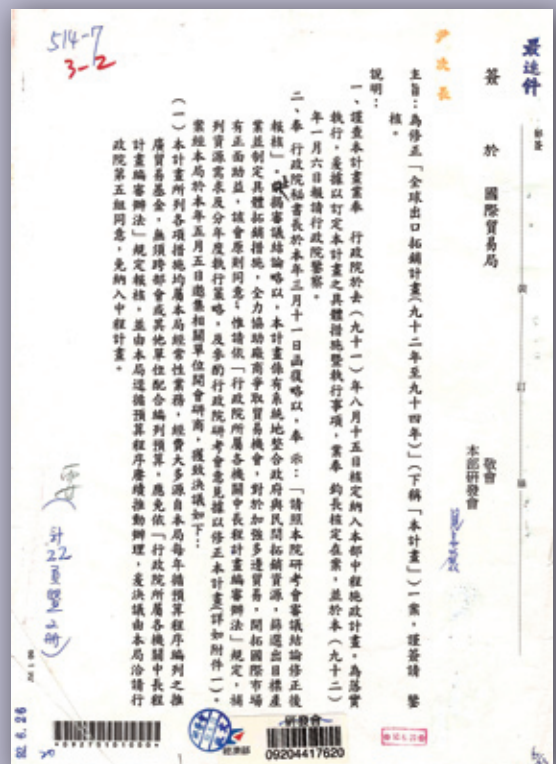 最速件
簽 於 國際貿易局
敬會
本部研發會
尹次長
主旨：為修正「全球出口拓銷計畫(九十二年至九十四年)」(下稱「本計畫」)一案，謹簽請 鑒
核。
說明：
一、謹查本計畫業奉 行政院於去(九十一)年八月十五日核定納入本部中程施政計畫，為落實
執行，爰據以訂定本計畫之具體措施暨執行事項，業奉 鈞長核定在案，並於本(九十二)
年一月六日報請行政院鑒察。
二、奉 行政院秘書長於本年三月十一日函復略以，奉 示：「請照本院研考會審議結論修正後
報核」。前揭審議結論略以，本計畫係有系統地整合政府與民間拓銷資源，篩選出目標產
業並制定具體拓銷措施，全力協助廠商爭取貿易機會，對於加強多邊貿易，開拓國際市場
有正面助益，該會原則同意，惟請依「行政院所屬各機關中長程計畫編審辦法」規定，補
列資源需求及分年度執行策略，及參酌行政院研考會意見據以修正本計畫(詳如附件一)。
案經本局於本年五月五日邀集相關單位開會研商，獲致決議如下：
(一)本計畫所列各項措施均屬本局經常性業務，經費大多源自本局每年循預算程序編列之推
廣貿易基金，無須跨部會或其他單位配合編列預算，應免依「行政院所屬各機關中長程
計畫編審辦法」規定報核，並由本局遵循預算程序賡續推動辦理，爰決議由本局洽請行
政院第五組同意，免納入中程計畫。
514-7
3-2
計22頁暨2冊
92. 6. 26
*092701010004*
經濟部
研發會
09204417620